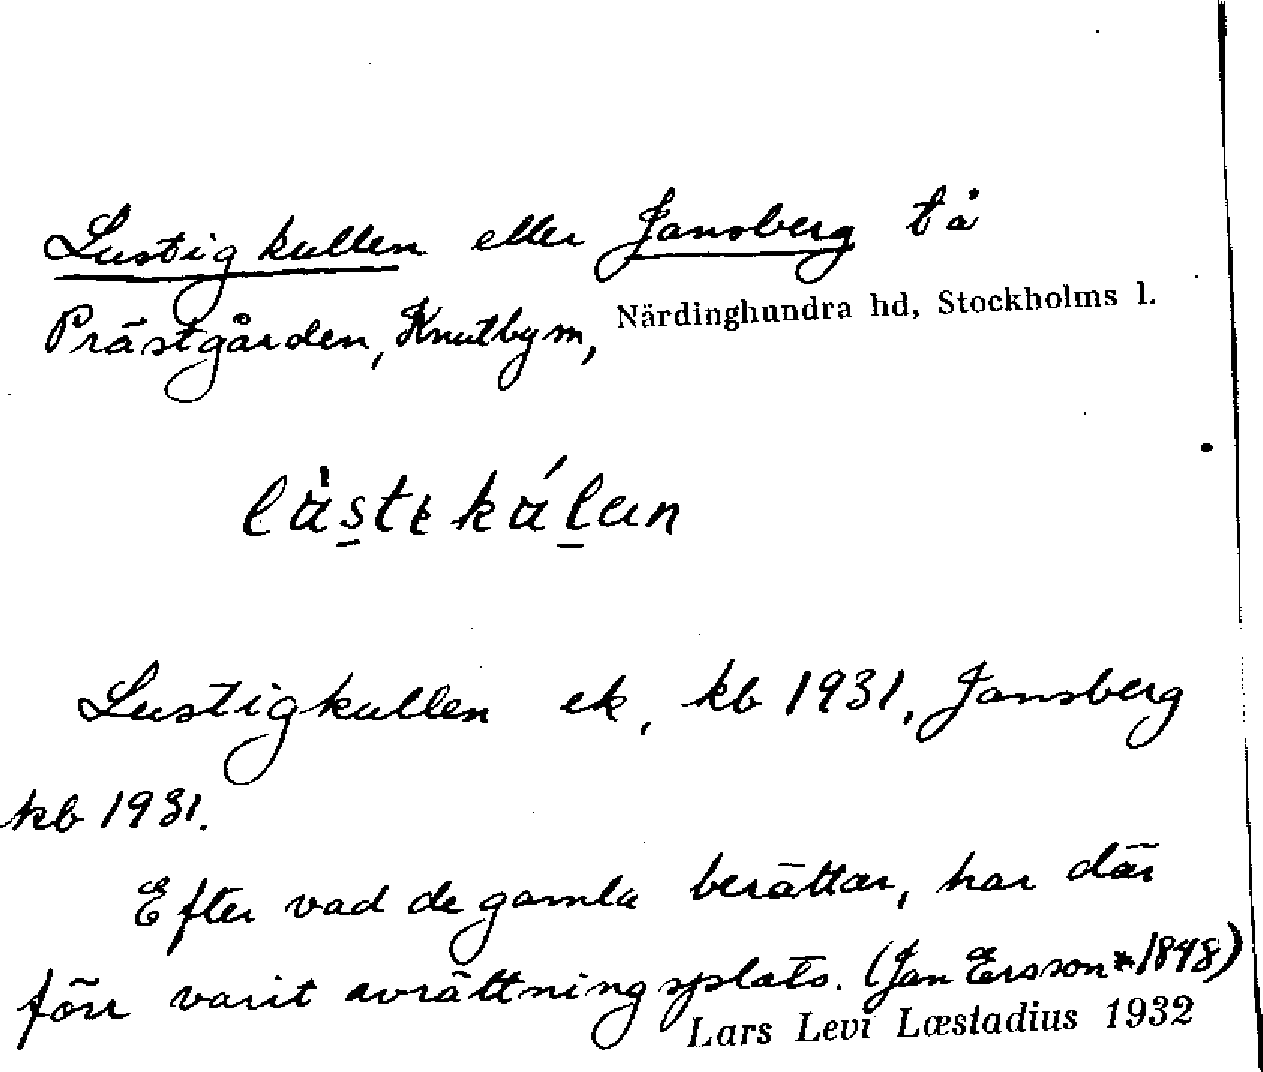 Lustigkullen eller Jansberg tå
Prästgården, Knutby sn, Närdinghundra hd, Stockholms l.
Lustigkullen ek, kb 1931, Jansberg
kb 1931.
Efter vad de gamla berättar, har där
förr varit avrättningsplats. (Jan Ersson *1848)
Lars Levi Læstadius 1932